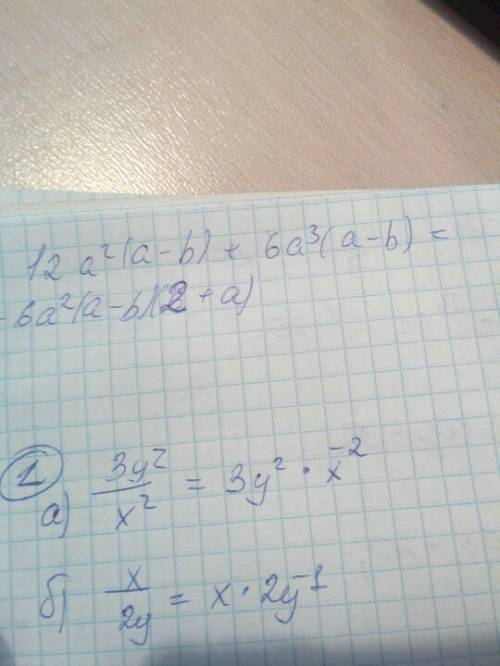 12 a²(a-b) + 6a³(a-b) =
= 6a²(a-b)(2+a)
1
а) 3y²/x² = 3y² · x⁻²
б) x/2y = x · 2y⁻¹